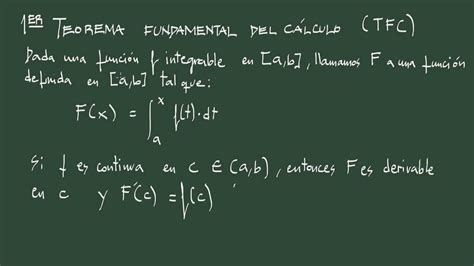 1ER TEOREMA FUNDAMENTAL DEL CÁLCULO (TFC)
Dada una función f integrable en [a,b], llamamos F a una función
definida en [a,b] tal que:
F(x) = ∫ₐˣ f(t)·dt
Si f es continua en c ∈ (a,b), entonces F es derivable
en c y F'(c) = f(c)